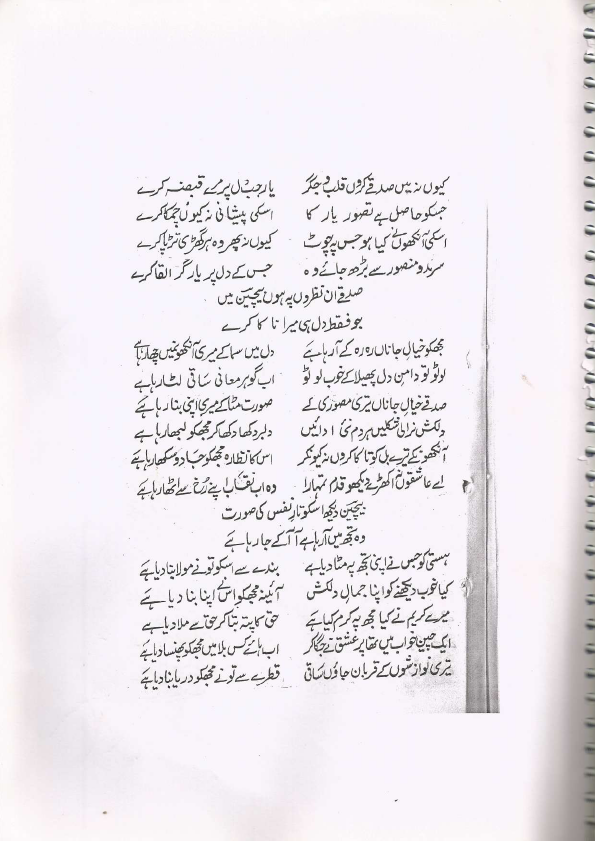 کیوں نہ میں صدقے کروں قلب و جگر یار جب دل پر مرے قبضہ کرے
جسکو حاصل ہے تصور یار کا اسکی پیشانی نہ کیوں چمکا کرے
اسکی آنکھوں نے کیا ہو جس پہ چوٹ کیوں نہ پھر وہ ہر گھڑی تڑپا کرے
سرمد و منصور سے بڑھ جائے وہ جس کے دل پر یار گر القا کرے
صدقے ان نظروں پہ ہوں بیچین میں
جو فقط دل ہی میرا تاکا کرے
مجھکو خیال جاناں رہ رہ کے آ رہا ہے دل میں سما کے میری آنکھوں میں چھا رہا ہے
لوٹو تو دامن دل پھیلا کے خوب لوٹو اب گوہر معانی ساقی لٹا رہا ہے
صدقے خیال جاناں تیری مصوری کے صورت مٹا کے میری اپنی بنا رہا ہے
دلکش نرالی شکلیں ہر دم نئی ادائیں دلبر دکھا دکھا کر مجھکو لبھا رہا ہے
آنکھوں کے تیرے تل کو تاکا کروں نہ کیونکر اس کا نظارہ مجھکو جادو سکھا رہا ہے
اے عاشقوں اکھڑے دیکھو قدم تمہارا وہ اب نقاب اپنے رُخ سے اٹھا رہا ہے
بیچین دیکھ اسکو تار نفس کی صورت
وہ تجھ میں آ رہا ہے آ آ کے جا رہا ہے
ہستی کو جس نے اپنی تجھ پہ مٹا دیا ہے بندے سے اسکو تو نے مولا بنا دیا ہے
کیا خوب دیکھنے کو اپنا جمال دلکش آئینہ مجھکو اس نے اپنا بنا دیا ہے
میرے کریم نے کیا مجھ پہ کرم کیا ہے حق کا پتہ بتا کر حق سے ملا دیا ہے
ایک چین خواب میں تھا پر عشق نے جگا کر اب ہائے کس بلا میں مجھکو پھنسا دیا ہے
تیری نوازشوں کے قربان جاؤں ساقی قطرے سے تو نے مجھکو دریا بنا دیا ہے